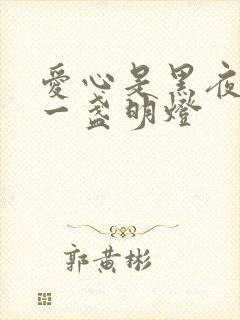 愛心是黑夜
一盞明燈
郭黄彬